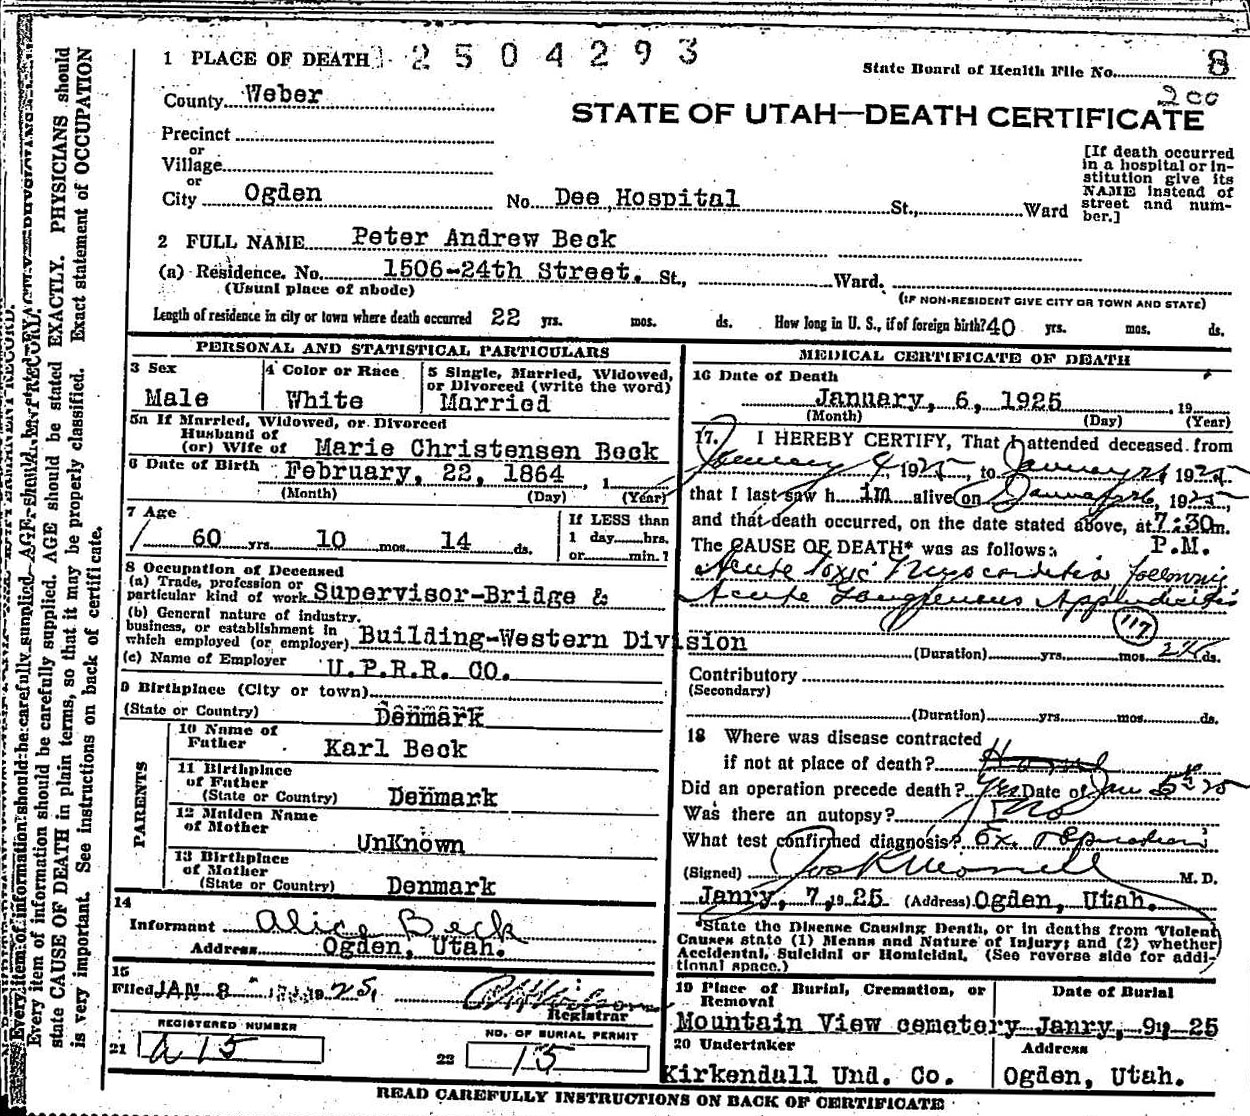 1 PLACE OF DEATH 2504293
State Board of Health File No. 8
200
County Weber
STATE OF UTAH—DEATH CERTIFICATE
Precinct
or
Village
or
City Ogden No. Dee Hospital St., Ward
[If death occurred
in a hospital or in-
stitution give its
NAME instead of
street and num-
ber.]
2 FULL NAME Peter Andrew Beck
(a) Residence. No. 1506-24th Street. St., Ward.
(Usual place of abode)
(IF NON-RESIDENT GIVE CITY OR TOWN AND STATE)
Length of residence in city or town where death occurred 22 yrs. mos. ds. How long in U. S., if of foreign birth? 40 yrs. mos. ds.
PERSONAL AND STATISTICAL PARTICULARS
3 Sex
Male
4 Color or Race
White
5 Single, Married, Widowed,
or Divorced (write the word)
Married
5a If Married, Widowed, or Divorced
Husband of
(or) Wife of Marie Christensen Beck
6 Date of Birth February, 22, 1864, 1
(Month) (Day) (Year)
7 Age
60 yrs 10 mos 14 ds.
If LESS than
1 day hrs.
or min.?
8 Occupation of Deceased
(a) Trade, profession or
particular kind of work Supervisor-Bridge &
(b) General nature of industry,
business, or establishment in
which employed (or employer) Building-Western Division
(c) Name of Employer U.P.R.R. CO.
9 Birthplace (City or town)
(State or Country) Denmark
PARENTS
10 Name of
Father Karl Beck
11 Birthplace
of Father
(State or Country) Denmark
12 Maiden Name
of Mother
UnKnown
13 Birthplace
of Mother
(State or Country) Denmark
14
Informant Alice Beck
Address Ogden, Utah.
15
Filed JAN 8 1925
Registrar
REGISTERED NUMBER
21 a 15
NO. OF BURIAL PERMIT
22 15
MEDICAL CERTIFICATE OF DEATH
16 Date of Death
January, 6, 1925 , 19
(Month) (Day) (Year)
17. I HEREBY CERTIFY, That I attended deceased from
January 4, 1925, to January 6, 1925
that I last saw h im alive on January 6, 1925,
and that death occurred, on the date stated above, at 7:30 m.
P.M.
The CAUSE OF DEATH* was as follows:
Acute Toxic Myocarditis following
Acute Gangrenous Appendicitis
117
(Duration) yrs. mos ds.
Contributory
(Secondary)
(Duration) yrs. mos. ds.
18 Where was disease contracted
if not at place of death? Home
Did an operation precede death? Yes Date of Jan 5th 25
Was there an autopsy? No
What test confirmed diagnosis? Ex. + Operation
(Signed) M. D.
Janry, 7, 1925 (Address) Ogden, Utah.
*State the Disease Causing Death, or in deaths from Violent
Causes state (1) Means and Nature of Injury; and (2) whether
Accidental, Suicidal or Homicidal. (See reverse side for addi-
tional space.)
19 Place of Burial, Cremation, or
Removal
Mountain View cemetery
Date of Burial
Janry, 9, 25
20 Undertaker
Kirkendall Und. Co.
Address
Ogden, Utah.
READ CAREFULLY INSTRUCTIONS ON BACK OF CERTIFICATE
Every item of information should be carefully supplied. AGE should be stated EXACTLY. PHYSICIANS should
state CAUSE OF DEATH in plain terms, so that it may be properly classified. Exact statement of OCCUPATION
is very important. See instructions on back of certificate.